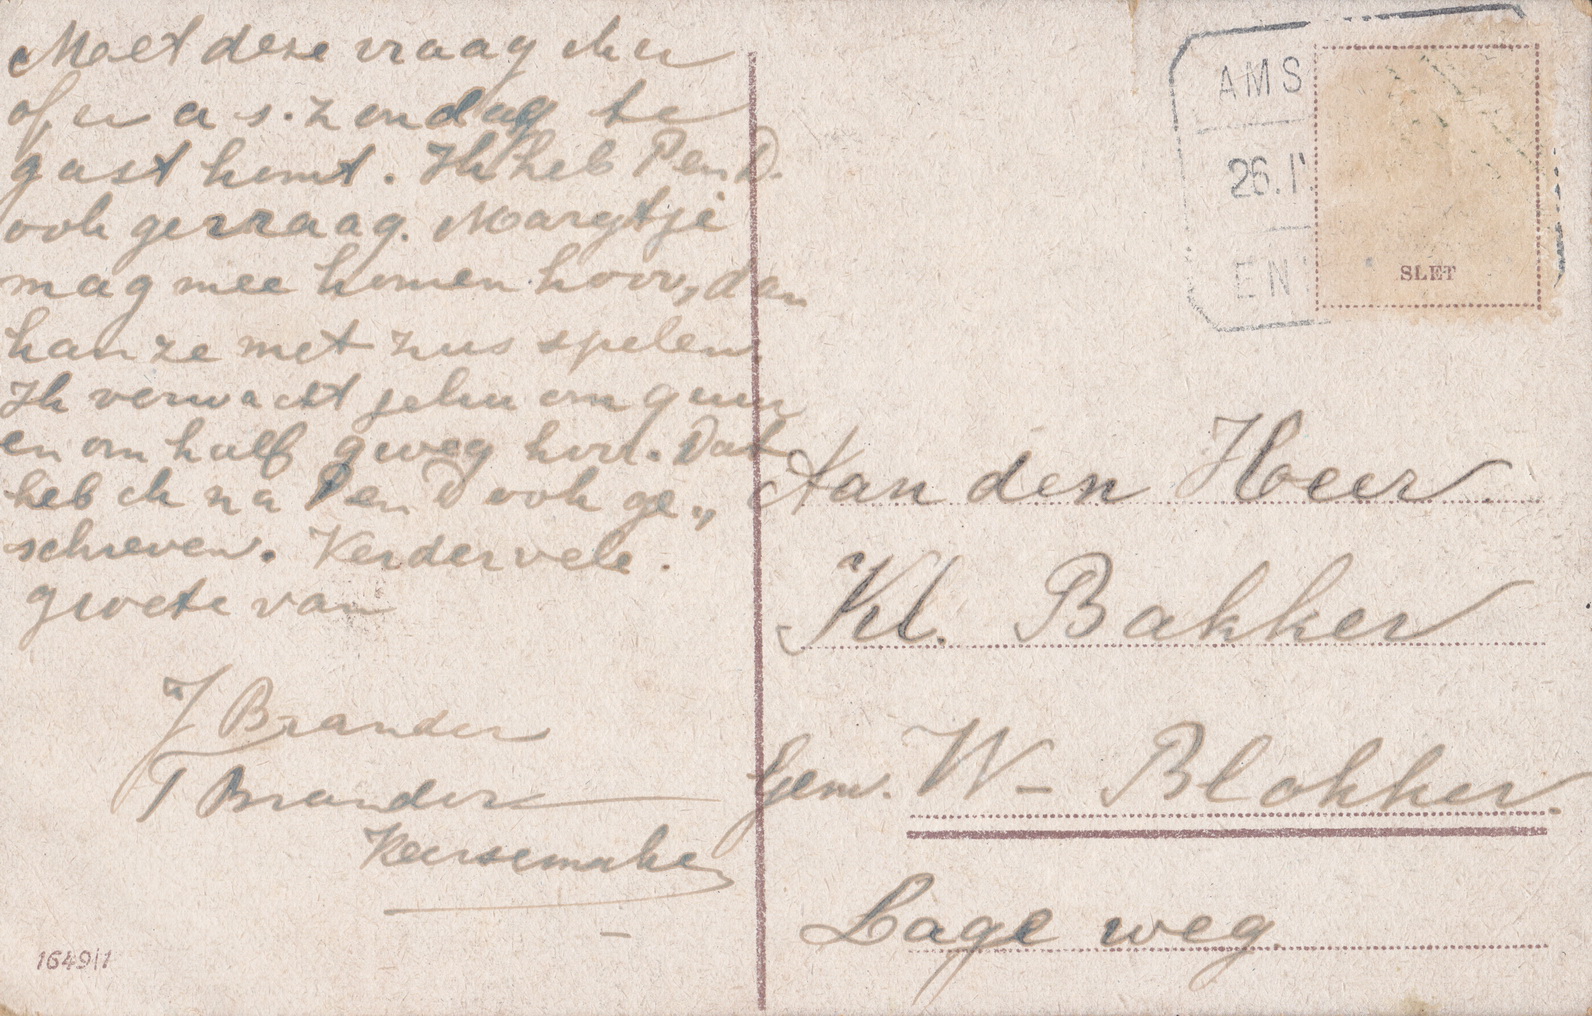 Moet deze vraag ik u
of u a s. zondag te
gast komt. Ik heb P en D.
ook gevraag. Margtje
mag mee komen hoor, dan
kan ze met zus spelen
Ik verwacht jelui om
en om half weg hoor. Dat
heb ik na P en D ook ge„
schreven. Verder vele.
groete van
J Brander
T Brander
Keersemake
1649/1
AMS
26.IV
EN
SLET
Aan den Heer
Kl. Bakker
Gem. W- Blokker.
Lage weg